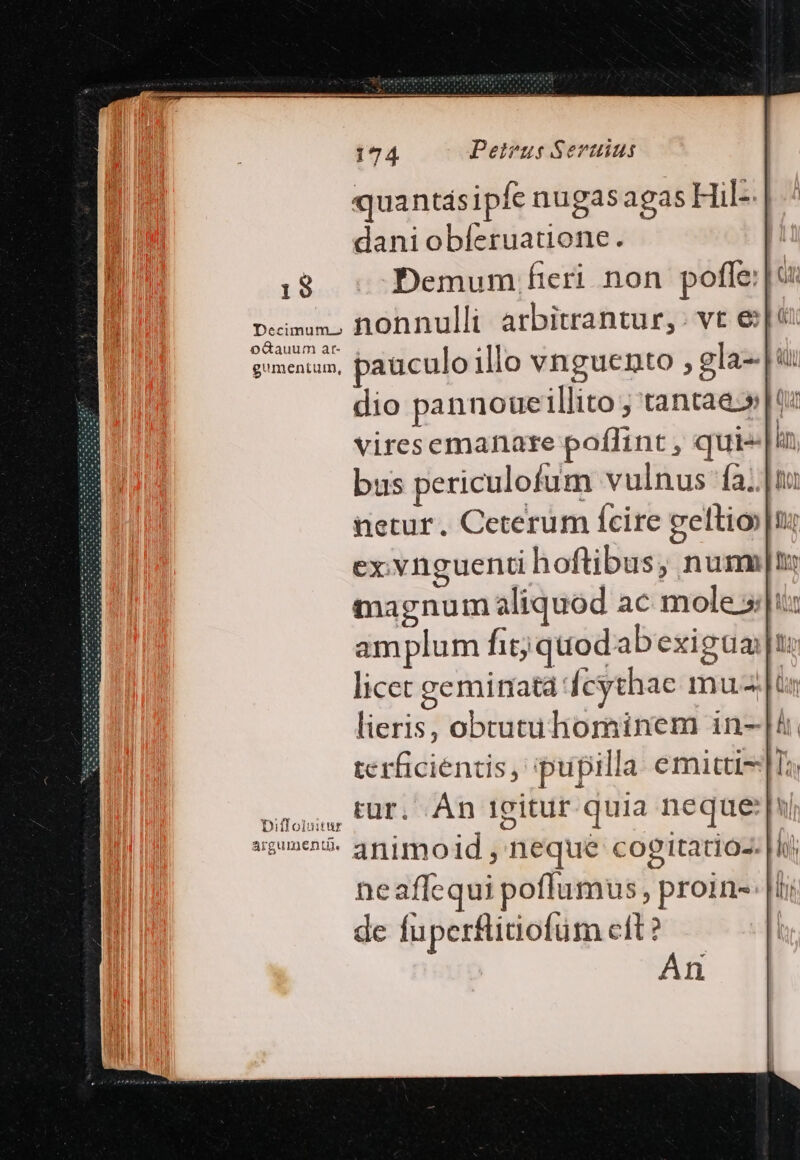 174 Petrus Seruius
quantásipſe nugasagas Hil-
dani obſeruatione.
18 Demum fieri non poſſe
Decimum nonnulli arbitrantur, vt e
octauum ar-
gumentum, pauculo illo vnguento, gla-
dio pannoue illito, tantae
vires emanare poſſint, qui-
bus periculoſum vulnus ſa-
netur. Ceterum ſcire geſtio
ex vnguenti hoſtibus, num
magnum aliquod ac mole
amplum fit, quod ab exigua
licet geminata ſcythae mu-
lieris, obtutu hominem in-
terficientis, pupilla emitti-
tur. An igitur quia neque
Diſſoluitur
argumentū. animo id, neque cogitatio-
ne aſſequi poſſumus, proin-
de ſuperſtitioſum eſt?
An